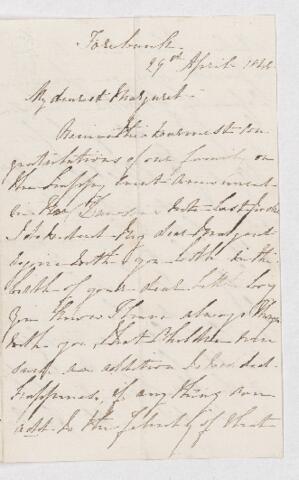 Forebank
29th April 18
My dearest Margaret
Receive the warmest con
gratulations of our family on
the happy event announced
in Mr Dawson's note last
I do indeed my dear Margaret
rejoice with you both in the
birth of your dear little boy
You know I have always
with you, that Children
such an addition to
happiness, if anything can
add to the felicity of that